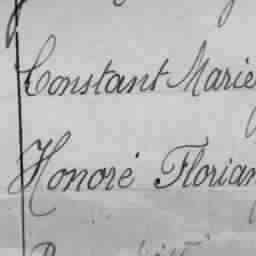 Constant Marie
Honoré Florian